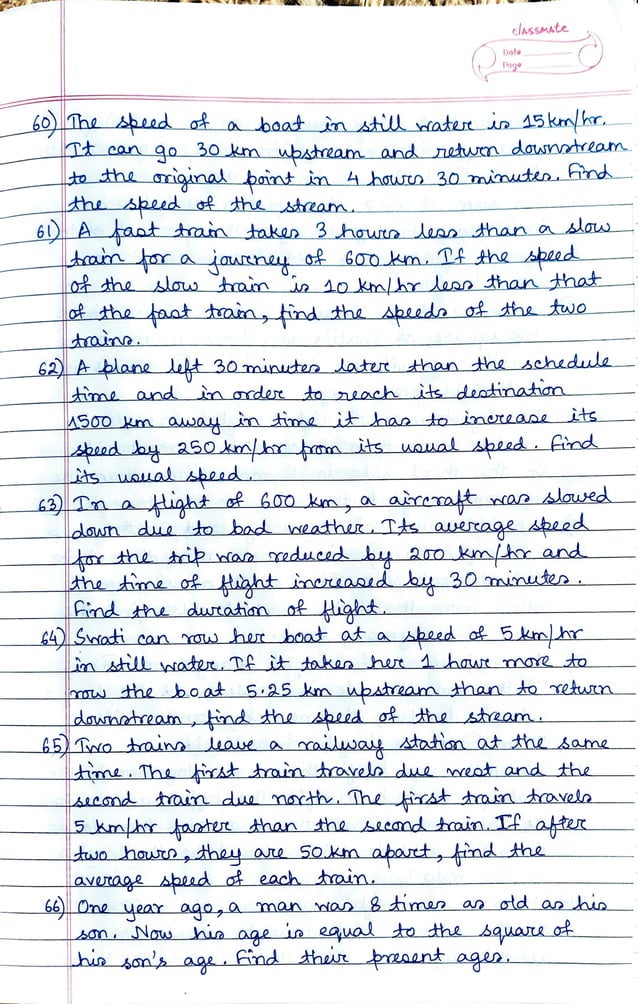 classmate
Date
Page
60) The speed of a boat in still water is 15km/hr.
It can go 30 km upstream and return downstream
to the original point in 4 hours 30 minutes. Find
the speed of the stream.
61) A fast train takes 3 hours less than a slow
train for a journey of 600 km. If the speed
of the slow train is 10 km/hr less than that
of the fast train, find the speeds of the two
trains.
62) A plane left 30 minutes later than the schedule
time and in order to reach its destination
1500 km away in time it has to increase its
speed by 250 km/hr from its usual speed. Find
its usual speed.
63) In a flight of 600 km, a aircraft was slowed
down due to bad weather. Its average speed
for the trip was reduced by 200 km/hr and
the time of flight increased by 30 minutes.
Find the duration of flight.
64) Swati can row her boat at a speed of 5 km/hr
in still water. If it takes her 1 hour more to
row the boat 5.25 km upstream than to return
downstream, find the speed of the stream.
65) Two trains leave a railway station at the same
time. The first train travels due west and the
second train due north. The first train travels
5 km/hr faster than the second train. If after
two hours, they are 50 km apart, find the
average speed of each train.
66) One year ago, a man was 8 times as old as his
son. Now his age is equal to the square of
his son's age. Find their present ages.